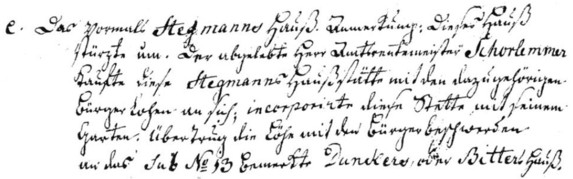 e. Das vormals Stegmanns Hauß. Anmerkung: Dieses Hauß
stürzte um. Der abgelebte Herr Amtsrentemeister Schorlemmer
kaufte diese Stegmanns Haußstätte mit den dazu gehörigen
Bürger Lohen an sich; incorporirte diese Stette mit seinem
Garten. Übertrug die Löhe mit den Bürgerbeschwerden
an das sub No 13 bemerkte Dunckers, oder Bitters Hauß.